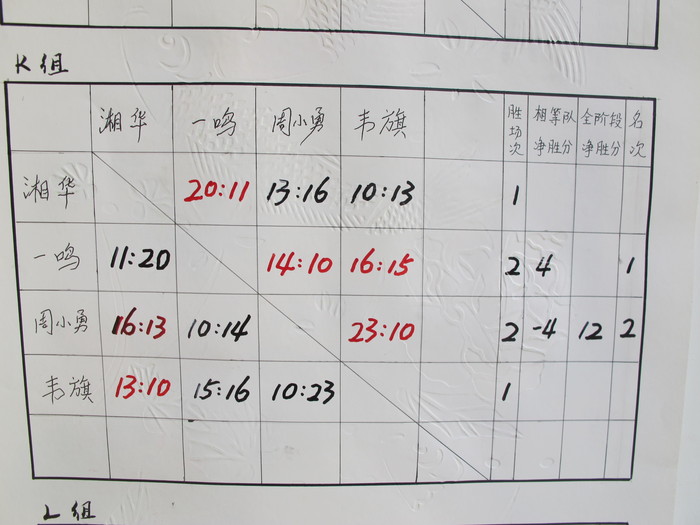 K组
湘华 一鸣 周小勇 韦旗 胜场次 相等队净胜分 全阶段净胜分 名次
湘华 20:11 13:16 10:13 1
一鸣 11:20 14:10 16:15 2 4 1
周小勇 16:13 10:14 23:10 2 -4 12 2
韦旗 13:10 15:16 10:23 1
L组